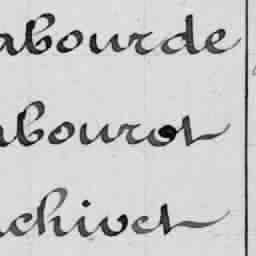 abourde
abourot
achivet